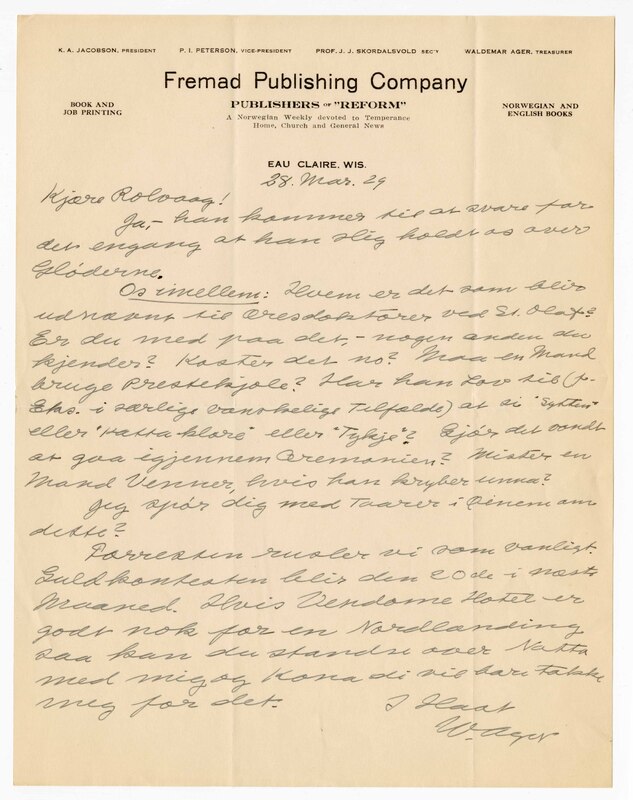 K. A. JACOBSON, PRESIDENT P. I. PETERSON, VICE-PRESIDENT PROF. J. J. SKORDALSVOLD SEC'Y WALDEMAR AGER, TREASURER
Fremad Publishing Company
BOOK AND
JOB PRINTING
PUBLISHERS OF "REFORM"
A Norwegian Weekly devoted to Temperance
Home, Church and General News
NORWEGIAN AND
ENGLISH BOOKS
EAU CLAIRE, WIS.
28. Mar. 29
Kjære Rolvaag!
Ja,- han kommer til at svare for
det engang at han slig holdt os over
Glöderne.
Os imellem: Hvem er det som blir
udnævnt til Æresdoktorer ved St. Olaf?
Er du med paa det,- nogen anden du
kjender? Koster det no? Maa en Mand
bruge Prestekjole? Har han Lov til (f.
Eks. i særlige vanskelige Tilfælde) at si "Sytten"
eller "Kattaklore" eller "Tykje"? Gjör det vondt
at gaa igjennem Ceremonien? Mister en
Mand Venner, hvis han kryber unna?
Jeg spör dig med Taarer i Öinem om
dette?
Forresten rusler vi som vanligt.
Guldkontesten blir den 20de i næste
Maaned. Hvis Vendome Hotel er
godt nok for en Nordlænding
saa kan du standse over Natta
med mig og Kona di vil bare takke
meg for det.
I Hast
W. Ager